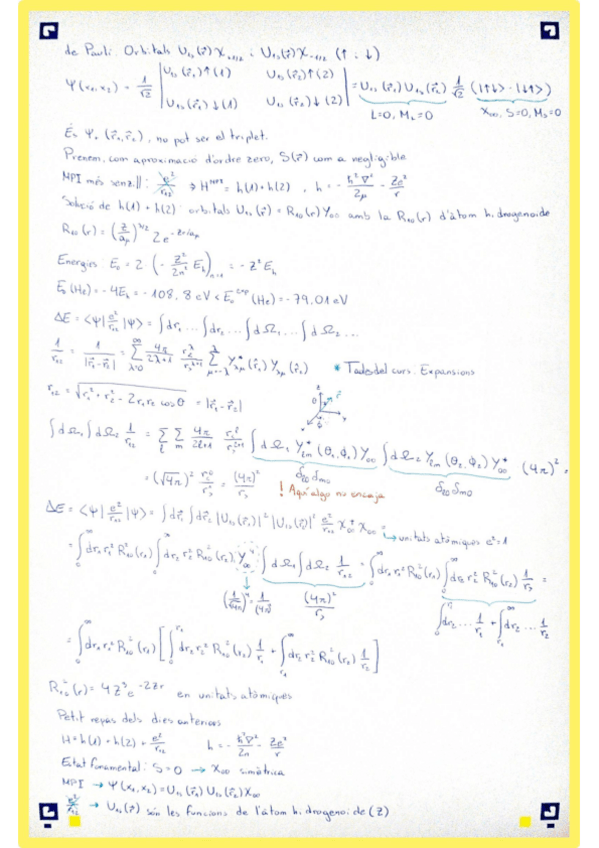 de Pauli. Orbitals U₁ₛ(r⃗)χ₊₁/₂ i U₁ₛ(r⃗)χ₋₁/₂ (↑ i ↓)
Ψ(x₁,x₂) = 1/√2 | U₁ₛ(r⃗₁)↑(1) U₁ₛ(r⃗₂)↑(2) | = U₁ₛ(r⃗₁)U₁ₛ(r⃗₂) 1/√2 (|↑↓> - |↓↑>)
| U₁ₛ(r⃗₁)↓(1) U₁ₛ(r⃗₂)↓(2) | L=0, M_L=0 χ₀₀, S=0, M_S=0
És Ψ₊(r⃗₁,r⃗₂), no pot ser el triplet.
Prenem, com aproximació d'ordre zero, S(r⃗) com a negligible
MPI més senzill: e²/r₁₂ ⇒ H^MPI = h(1)+h(2), h = -ħ²∇²/2μ - Ze²/r
Solució de h(1)+h(2): orbitals U₁ₛ(r⃗) = R₁₀(r)Y₀₀ amb la R₁₀(r) d'àtom hidrogenoide
R₁₀(r) = (Z/a_μ)^3/2 2e^-Zr/a_μ
Energies: E₀ = 2·(-Z²/2n² E_h)ₙ₌₁ = -Z²E_h
E₀(He) = -4E_h = -108,8 eV < E₀^exp (He) = -79,01 eV
ΔE = <Ψ|e²/r₁₂|Ψ> = ∫dr₁...∫dr₂...∫dΩ₁...∫dΩ₂...
1/r₁₂ = 1/|r⃗₁-r⃗₂| = Σ_λ=0^∞ 4π/2λ+1 r<^λ/r>^λ+1 Σ_μ=-λ^λ Y*_λμ(r̂₁)Y_λμ(r̂₂) * Taules del curs. Expansions
r₁₂ = √r₁²+r₂²-2r₁r₂cosθ = |r⃗₁-r⃗₂|
z
θ r⃗
y
x
∫dΩ₁∫dΩ₂ 1/r₁₂ = Σ_l Σ_m 4π/2l+1 r<^l/r>^l+1 ∫dΩ₁ Y*_lm(θ₁,ϕ₁)Y₀₀ ∫dΩ₂ Y_lm(θ₂,ϕ₂)Y*₀₀ (4π)² =
δ_l0 δ_m0 δ_l0 δ_m0
= (√4π)² r<⁰/r> = (4π)²/r> ! Aquí algo no encaja
ΔE = <Ψ|e²/r₁₂|Ψ> = ∫dr⃗₁∫dr⃗₂ |U₁ₛ(r⃗₁)|²|U₁ₛ(r⃗₂)|² e²/r₁₂ χ₀₀⁺χ₀₀ = → unitats atòmiques e²=1
= ∫₀^∞dr₁r₁²R₁₀²(r₁)∫₀^∞dr₂r₂²R₁₀²(r₂) Y₀₀⁴ ∫dΩ₁∫dΩ₂ 1/r₁₂ = ∫₀^∞dr₁r₁²R₁₀²(r₁)∫₀^∞dr₂r₂²R₁₀²(r₂) 1/r> =
(1/√4π)⁴ = 1/(4π)² (4π)²/r> ∫₀^r₁dr₂...1/r₁ + ∫_r₁^∞dr₂...1/r₂
= ∫₀^∞dr₁r₁²R₁₀²(r₁)[∫₀^r₁dr₂r₂²R₁₀²(r₂) 1/r₁ + ∫_r₁^∞dr₂r₂²R₁₀²(r₂) 1/r₂]
R₁₀²(r) = 4Z³e^-2Zr en unitats atòmiques
Petit repàs dels dies anteriors
H = h(1)+h(2)+e²/r₁₂ h = -ħ²∇²/2μ - Ze²/r
Estat fonamental: S=0 → χ₀₀ simètrica
MPI → Ψ(x₁,x₂) = U₁ₛ(r⃗₁)U₁ₛ(r⃗₂)χ₀₀
e²/r₁₂ → U₁ₛ(r⃗) són les funcions de l'àtom hidrogenoide (Z)